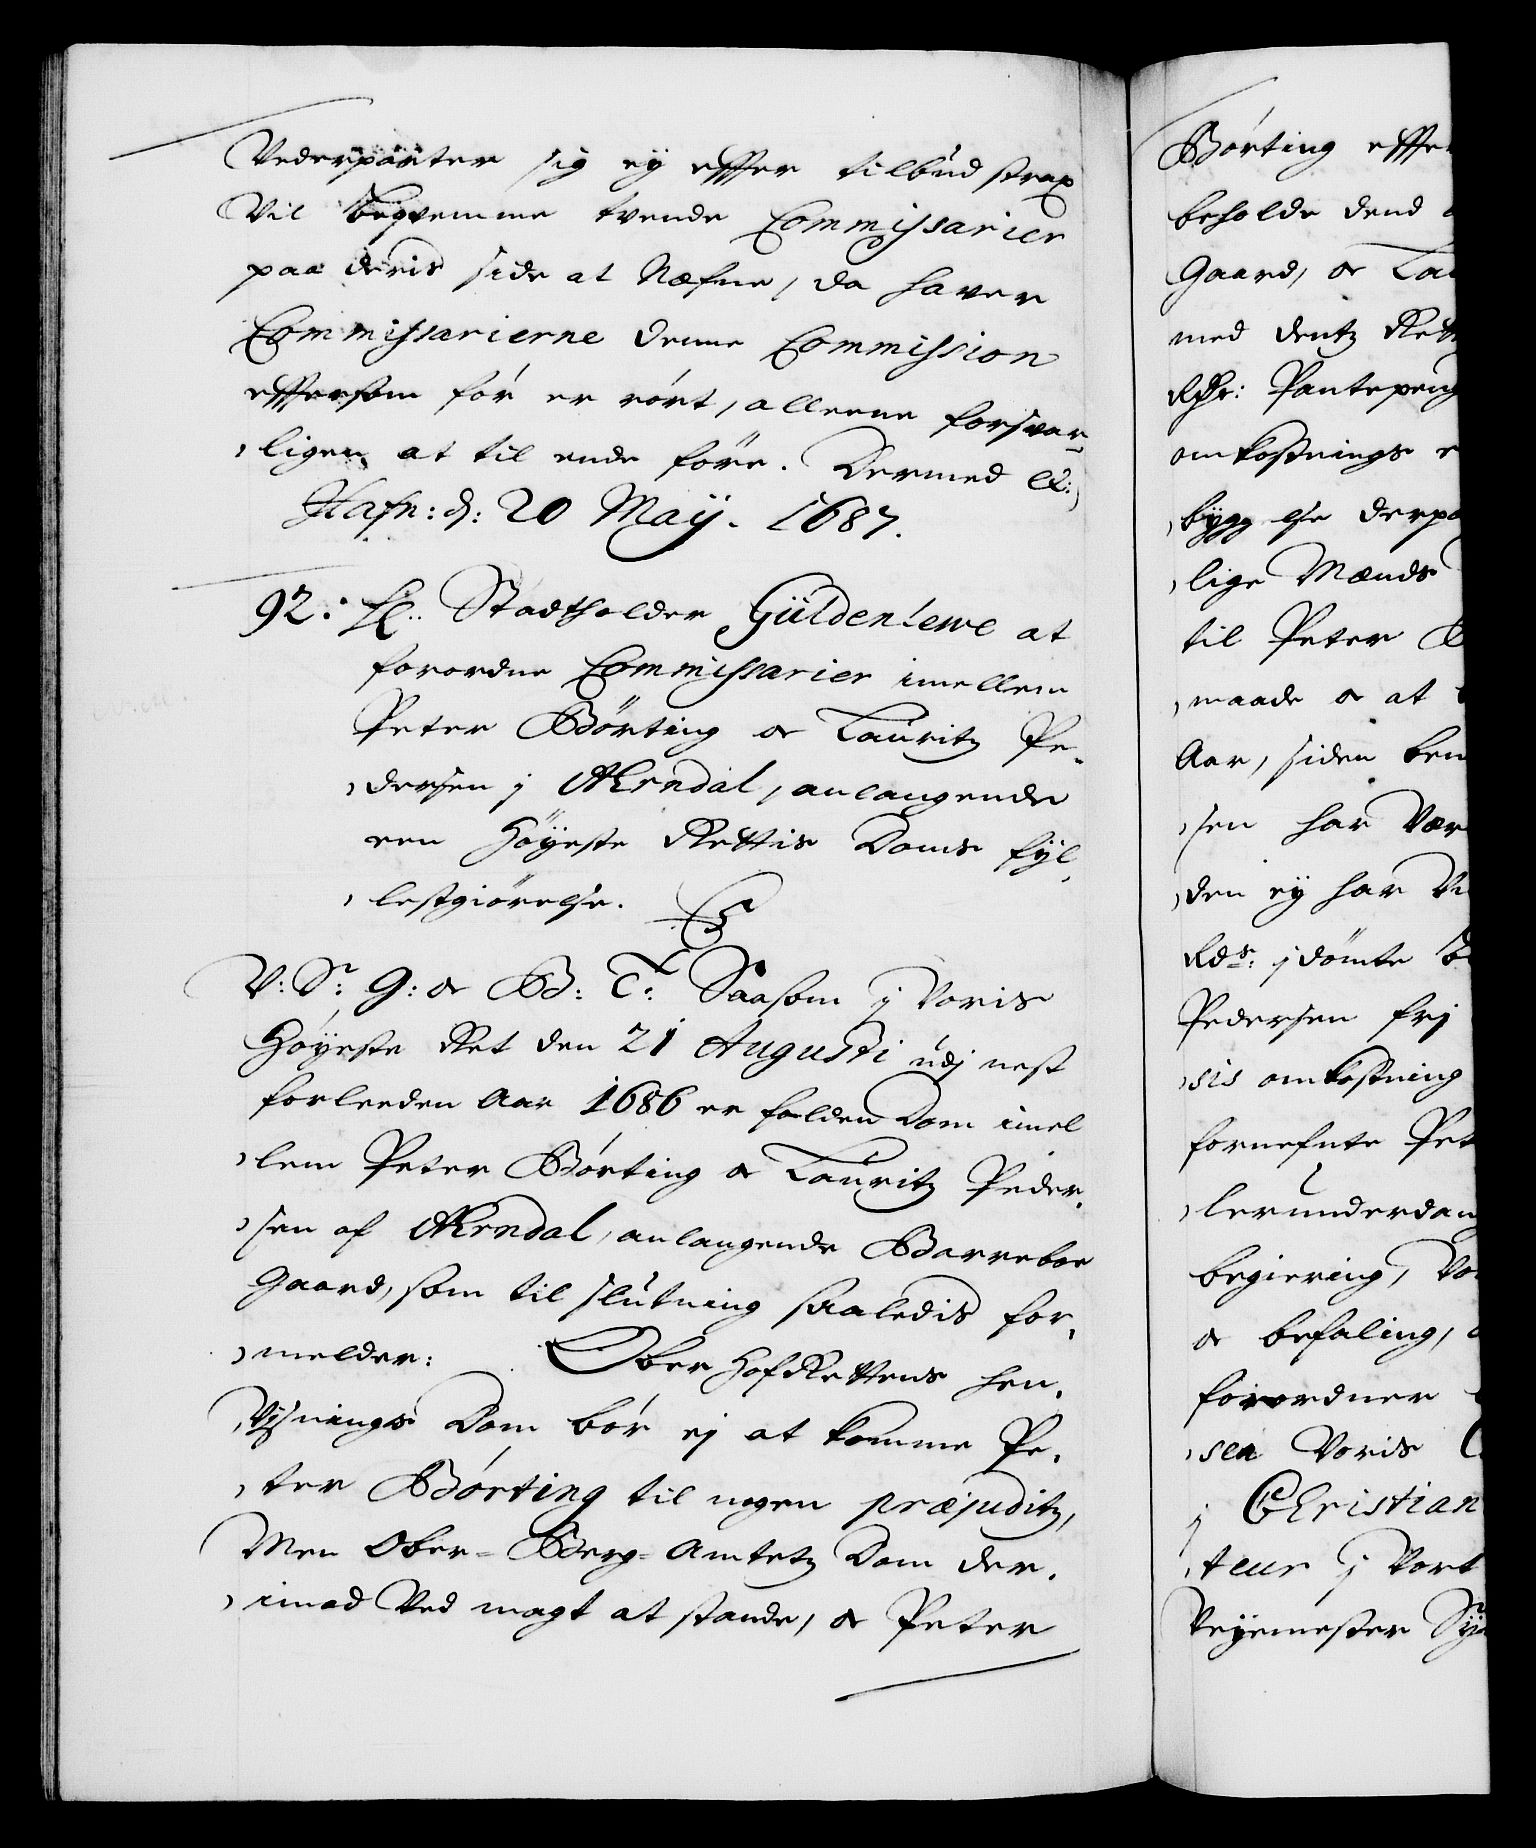 Vederparter sig ey effter tilbud strax
Vil beqvemme tvende Commissarier
paa deris side at Næfne, da haver
Commissarierne denne Commission
effersom før er rørt, alleene forsvar-
ligen at til ende føre. Dermed &c:
Hafn: d: 20 Maÿ. 1687.
92: H: Stadtholder Güldenlewe at
forordne Commissarier imellem
Peter Børting oc Lauritz Pe-
dersen j Arndal, anlangende
een Høyeste Rettis Doms fyl-
lestgiørelse. C5
V: S: G: oc B: T: Saasom j Voris
Høyeste Ret den 21 Augusti udj nest
forleeden Aar 1686 er falden Dom imel
lem Peter Børting oc Lauritz Peder-
sen af Arndal, anlangende Barreboe
Gaard, som til slutning saaledis for-
melder: Ober Hof Rettens hen-
Visnings Dom bør ej at komme Pe-
ter Børting til nogen præjuditz,
Men Ober-Berg-Amtetz Dom der-
imod Ved magt at stande, oc Peter
Børting effter
beholde dend
Gaard, oc
med dentz
Rdr:
omkostnings
bygg else
lige Mænds
til Peter
maade oc at
Aar, siden
sen har
den ey har
Rdr: jdømte
Pedersen frj
sis omkostning
fornefnte
lerunderdan
begiering,
oc befaling,
forordner
sen Voris
j Christian
teur j Vort
Veyemester